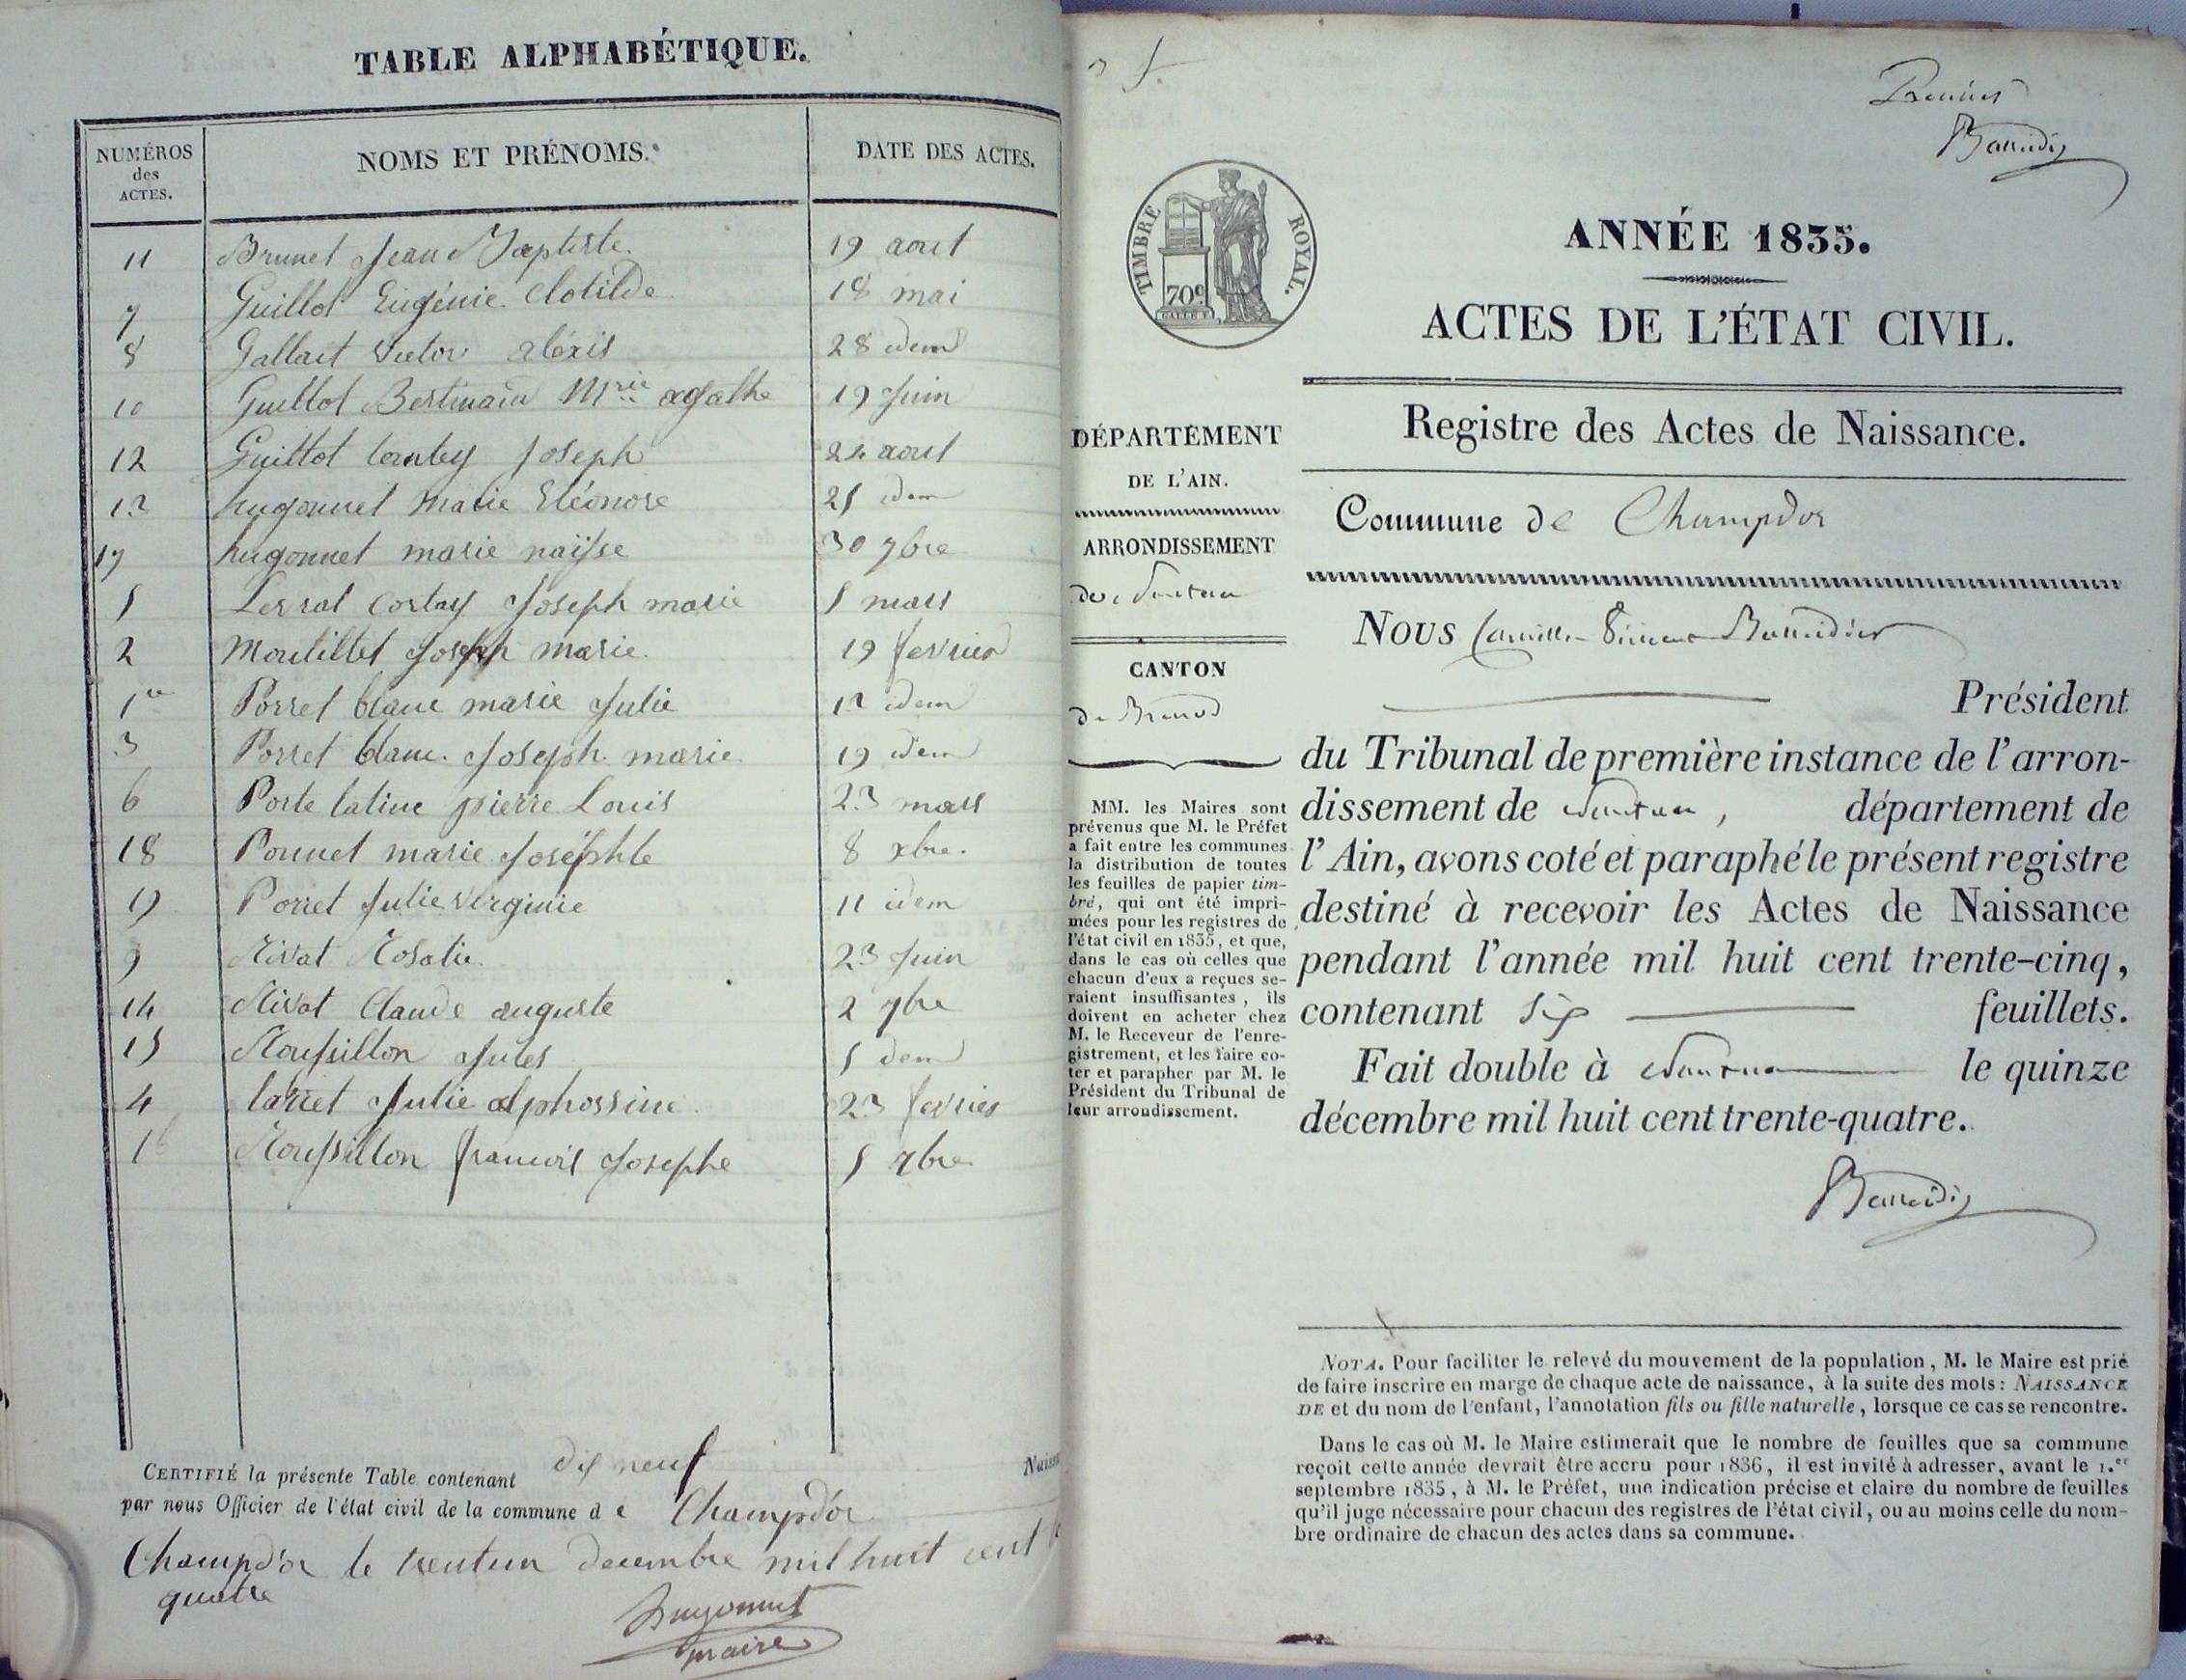 TABLE ALPHABÉTIQUE.
NUMÉROS des ACTES.
NOMS ET PRÉNOMS.
DATE DES ACTES.
11 Brunet Jean Baptiste. 19 aout
7 Guillot Eugénie Clotilde 18 mai
8 Gallait Victor aléxis 28 idem
10 Guillot Bertinain Mrie agathe 19 Juin
12 Guillot Joseph 24 aout
13 hugonnet Marie Eléonore 25 idem
17 hugonnet marie naïsse 30 7bre
5 Lerrat Cortay Joseph marie 5 mars
2 Montillet Joseph marie. 19 fevrier
1er Porret blanc marie Julie 12 idem
3 Porret blanc. Joseph marie. 19 idem
6 Porte latine pierre Louis 23 mars
18 Ponnet marie Joséphte 8 xbre.
19 Porret Julie Virginie 11 idem
9 Rivat Rosalie. 23 Juin
14 Rivat Claude auguste 2 7bre
15 Roussillon Jules 5 idem
4 tarret Julie alphossine. 23 fevrier
16 Roussillon francois Josephe 5 7bre
CERTIFIÉ la présente Table contenant dix neuf Naiss
par nous Officier de l'état civil de la commune de Champdor
Champdor le trentun decembre mil huit cent
quatre
hugonnet
maire
Premier
TIMBRE ROYAL.
70c
ANNÉE 1835.
ACTES DE L'ÉTAT CIVIL.
Registre des Actes de Naissance.
DÉPARTEMENT
DE L'AIN.
ARRONDISSEMENT
de Nantua
CANTON
de Brenod
MM. les Maires sont
prévenus que M. le Préfet
a fait entre les communes
la distribution de toutes
les feuilles de papier tim-
bré, qui ont été impri-
mées pour les registres de
l'état civil en 1835, et que,
dans le cas où celles que
chacun d'eux a reçues se-
raient insuffisantes, ils
doivent en acheter chez
M. le Receveur de l'enre-
gistrement, et les faire co-
ter et parapher par M. le
Président du Tribunal de
leur arrondissement.
Commune de Champdor
Nous Camille
Président
du Tribunal de première instance de l'arron-
dissement de Nantua, département de
l'Ain, avons coté et paraphé le présent registre
destiné à recevoir les Actes de Naissance
pendant l'année mil huit cent trente-cinq,
contenant Six feuillets.
Fait double à Nantua le quinze
décembre mil huit cent trente-quatre.
NOTA. Pour faciliter le relevé du mouvement de la population, M. le Maire est prié
de faire inscrire en marge de chaque acte de naissance, à la suite des mots: NAISSANCE
DE et du nom de l'enfant, l'annotation fils ou fille naturelle, lorsque ce cas se rencontre.
Dans le cas où M. le Maire estimerait que le nombre de feuilles que sa commune
reçoit cette année devrait être accru pour 1836, il est invité à adresser, avant le 1.er
septembre 1835, à M. le Préfet, une indication précise et claire du nombre de feuilles
qu'il juge nécessaire pour chacun des registres de l'état civil, ou au moins celle du nom-
bre ordinaire de chacun des actes dans sa commune.